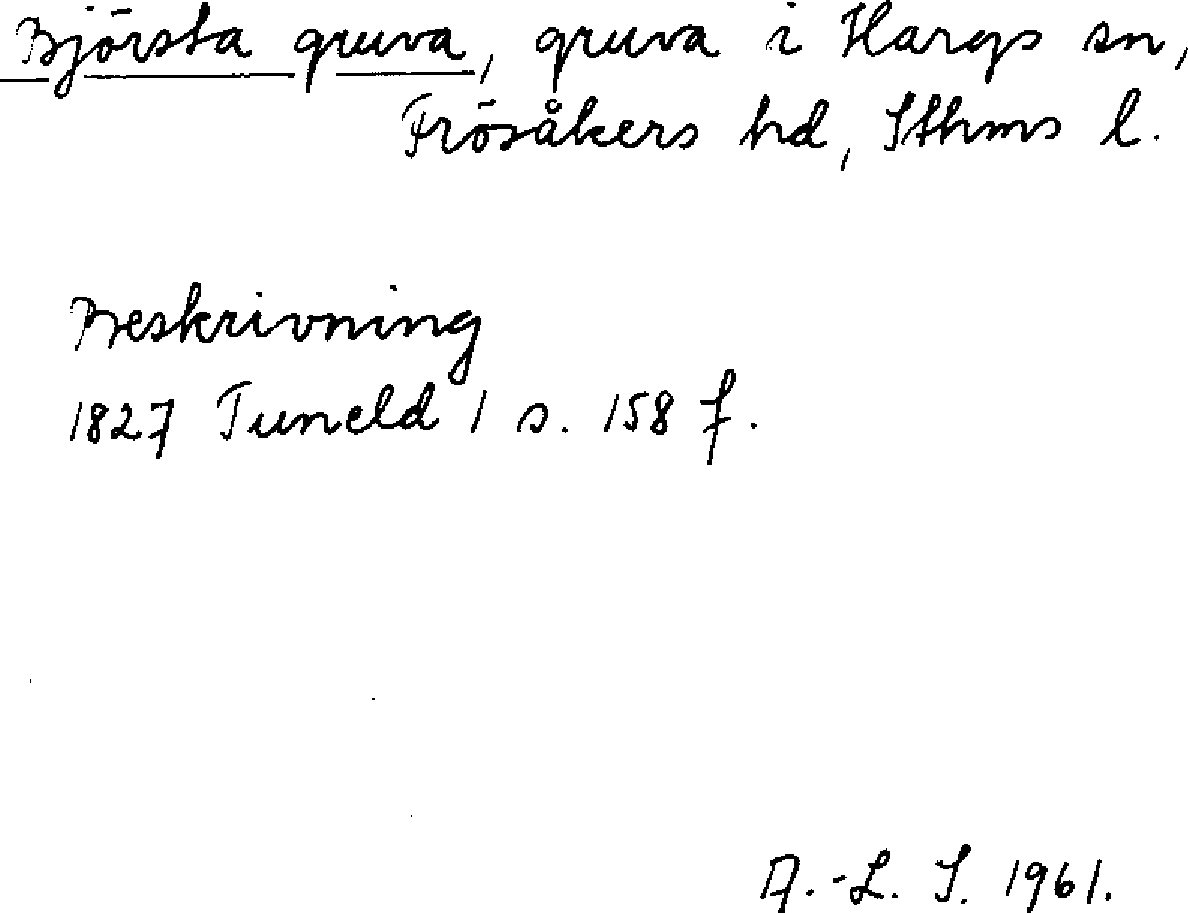 Björsta gruva, gruva i Hargs sn,
Frösåkers hd, Sthms l.
Beskrivning
1827 Tuneld 1 s. 158 f.
A.-L. S. 1961.